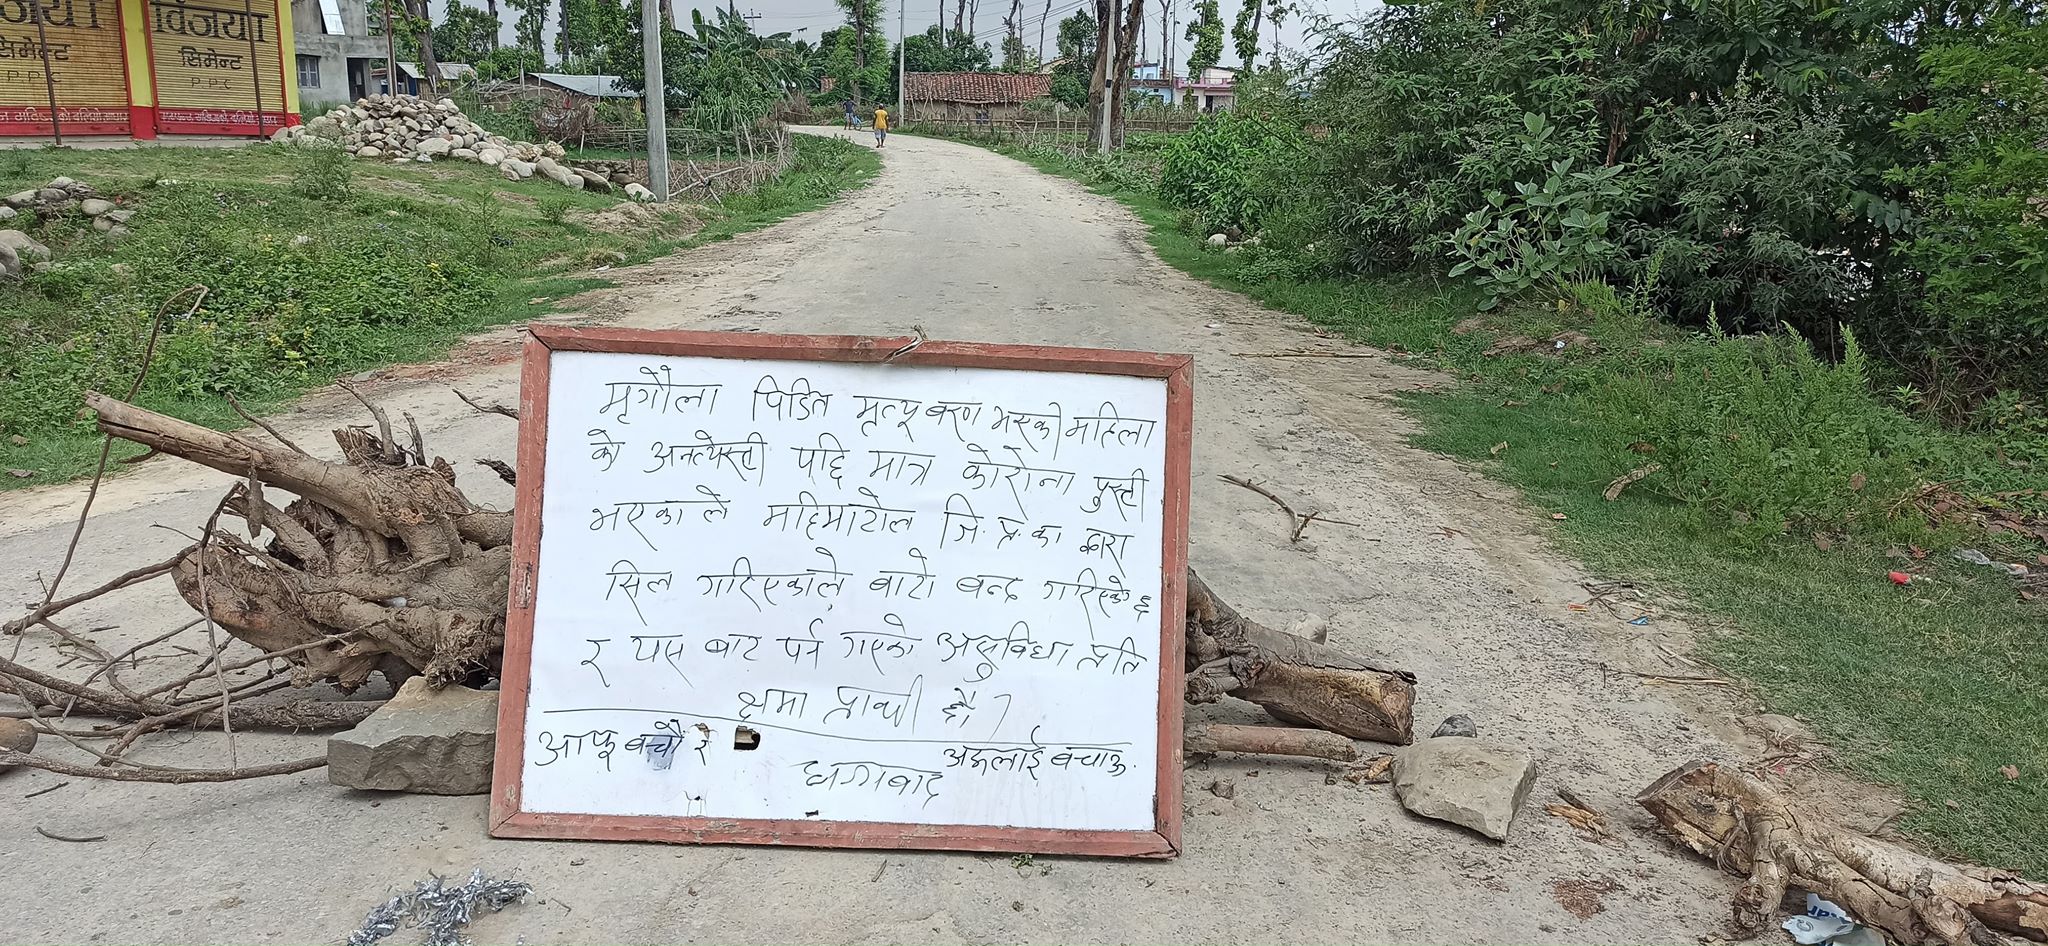 विजया
सिमेन्ट
PPC
विजया
सिमेन्ट
PPC
मृगौला पिडित मृत्यू वरण भएको महिला
को अन्त्येस्टी पछि मात्र कोरोना पुस्टी
भएकाले महिमाटोल जि.प्र.का द्वारा
सिल गरिएकाले बाटो बन्द गरिएको छ
र यस बाट पर्न गएको असुविधा प्रति
क्षमा प्राथी छौ।
आफू बचौं र अरुलाई बचाऊ.
धन्यवाद